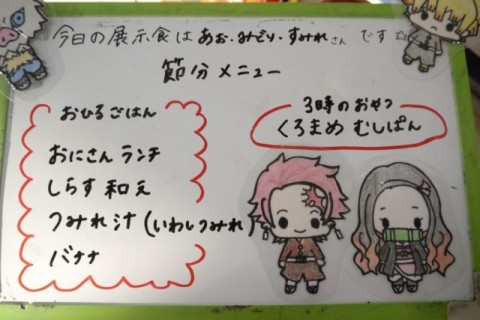 今日の展示食は あお・みどり・すみれさん です☆
節分メニュー
おひるごはん
おにさん ランチ
しらす 和え
つみれ汁 (いわしつみれ)
バナナ
3時のおやつ
くろまめ むしぱん